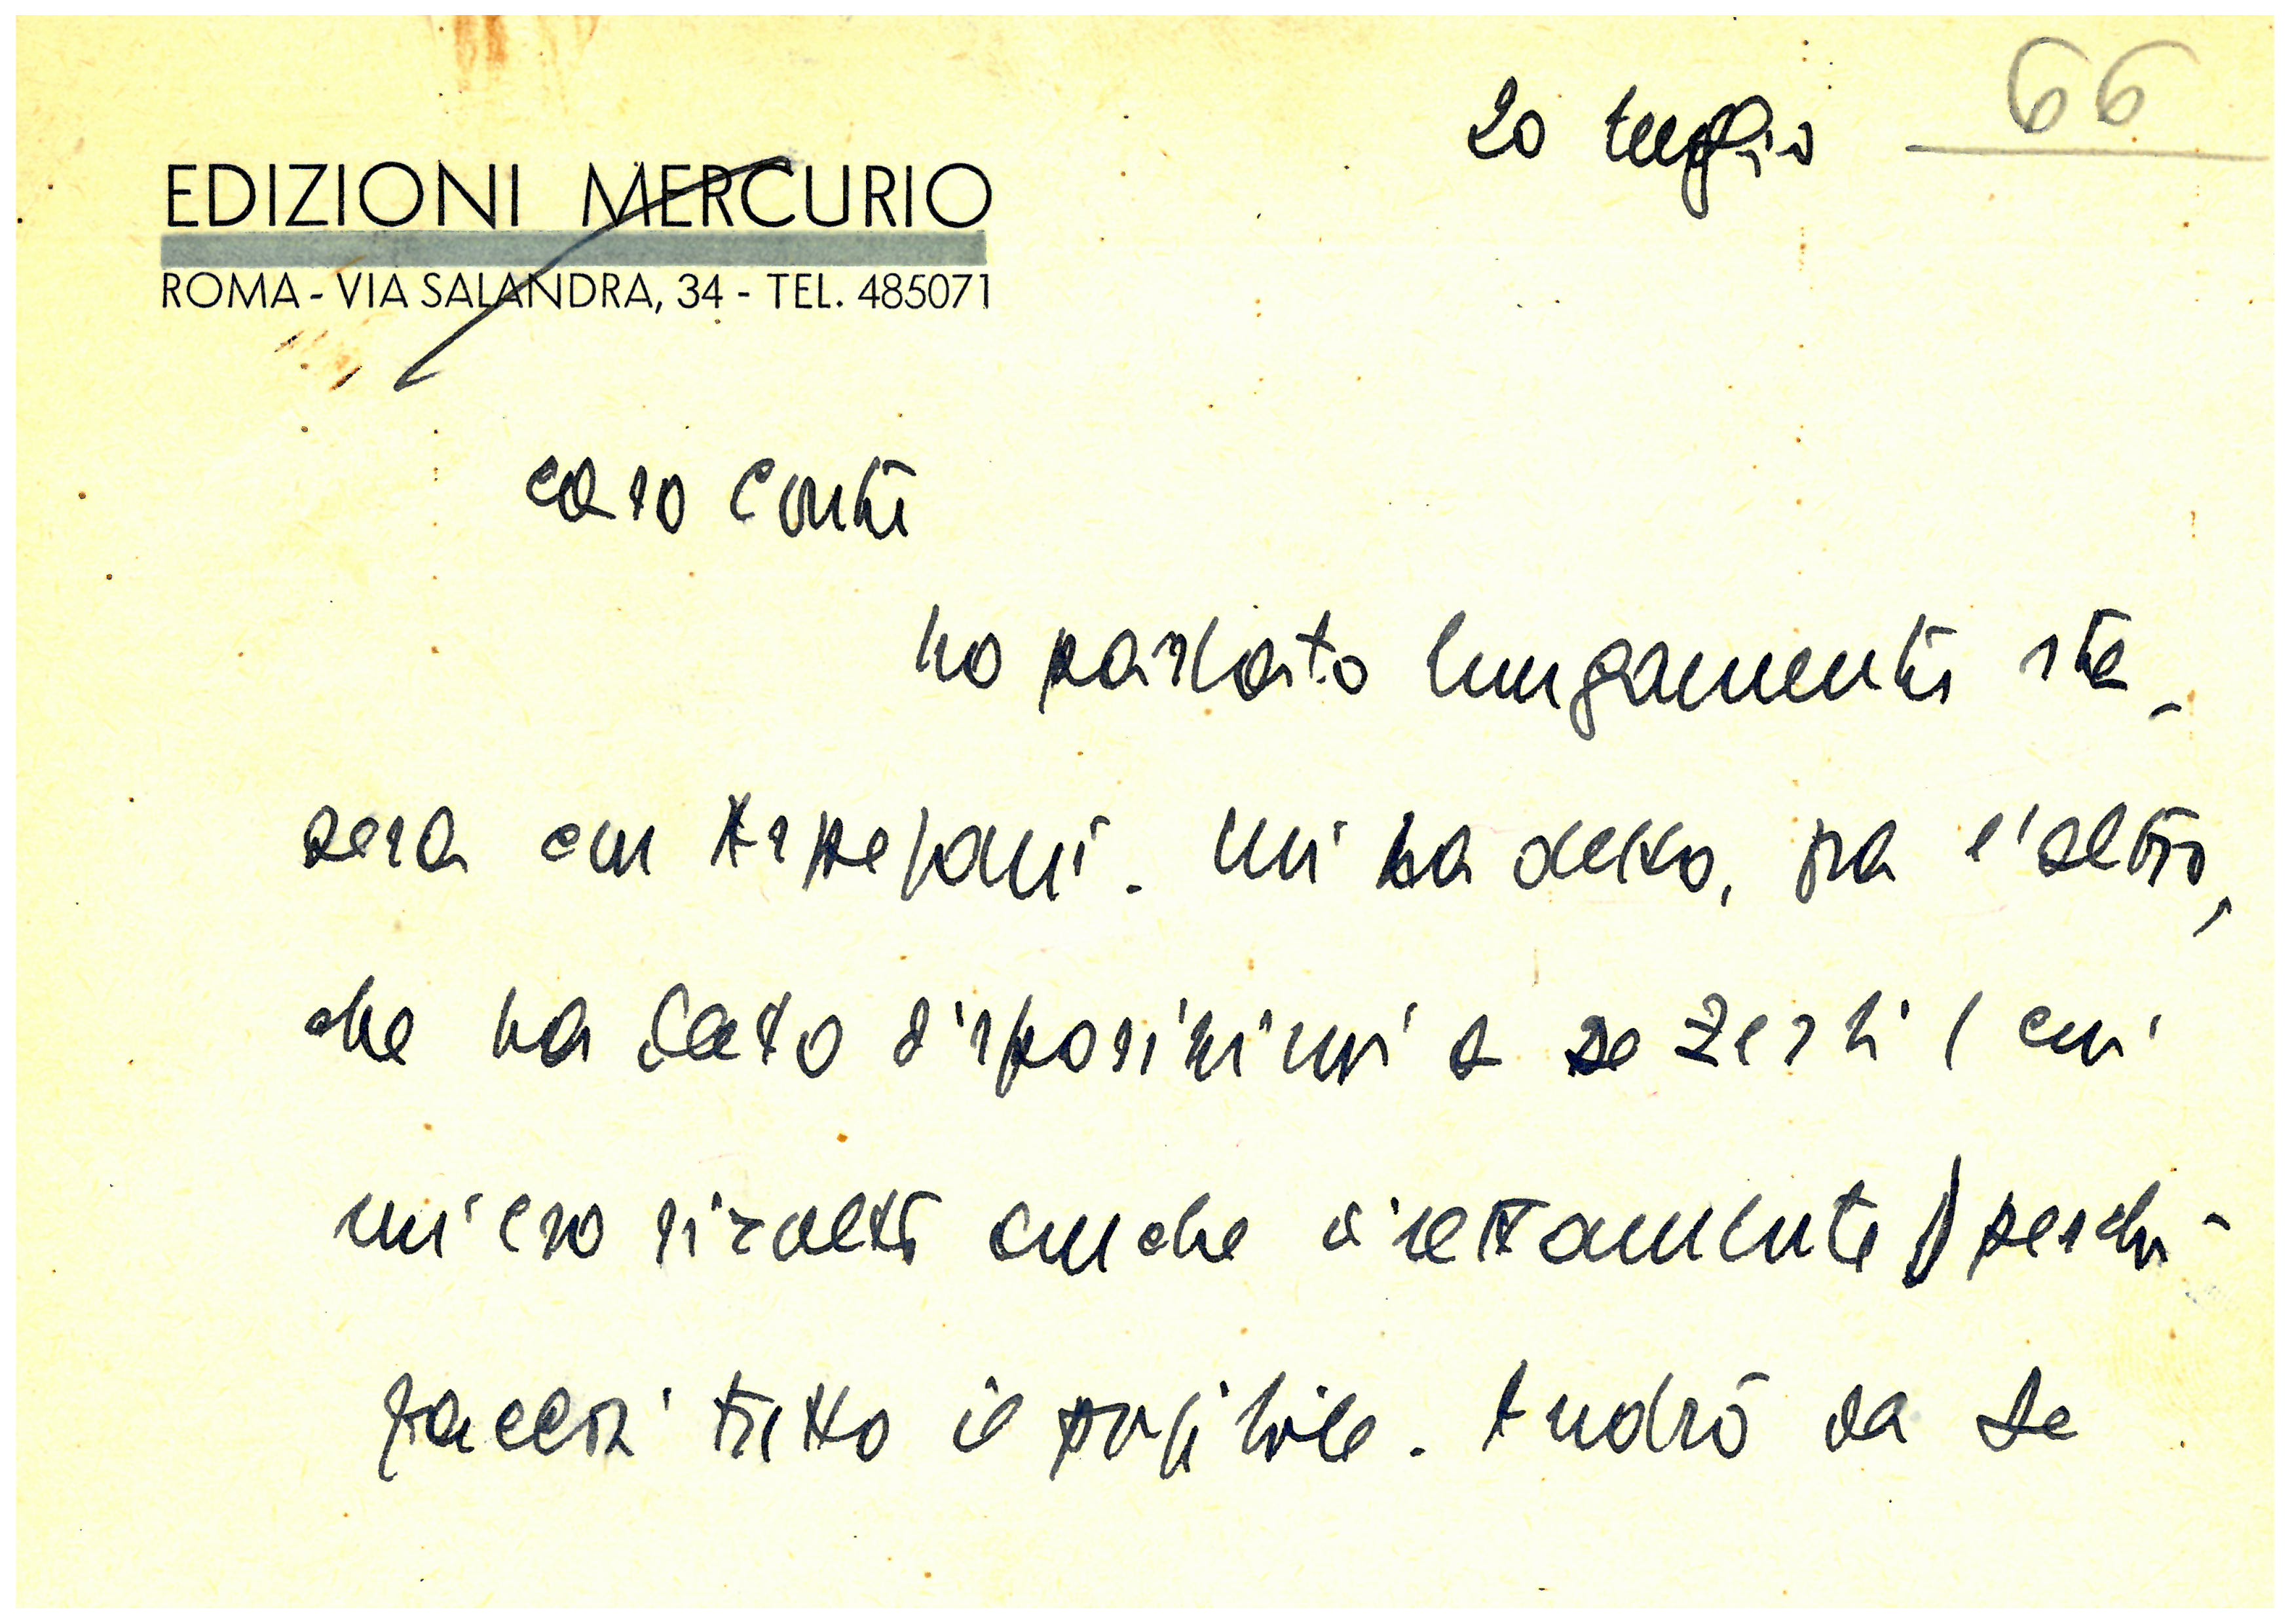 20 luglio 66
EDIZIONI MERCURIO
ROMA - VIA SALANDRA, 34 - TEL. 485071
caro Conte
ho parlato lungamente sta-
sera con Arpesani. Mi ha detto, fra l'altro,
che ha dato disposizioni a De Zerbi (cui
mi ero rivolto anche direttamente) perchè
faccia tutto il possibile. Andrò da De